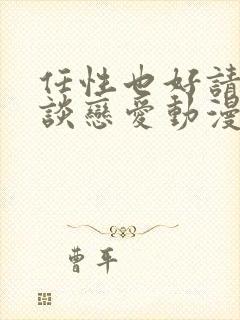 任性也好請
談戀愛動漫
曹平